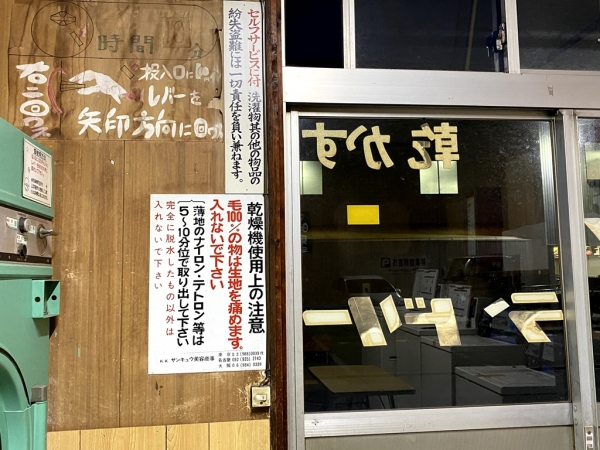 時間
分
投入口に
レバーを
矢印方向に回す
右に回
セルフサービスに付 洗濯物其の他の物品の
紛失盗難には一切責任を負い兼ねます。
乾燥機使用上の注意
毛100％の物は生地を痛めます。
入れないで下さい
薄地のナイロン・テトロン等は
5〜10分位で取り出して下さい
完全に脱水したもの以外は
入れないで下さい
KK サンキュウ美容商事
東京
名古屋
大阪
乾かす
ランドリー